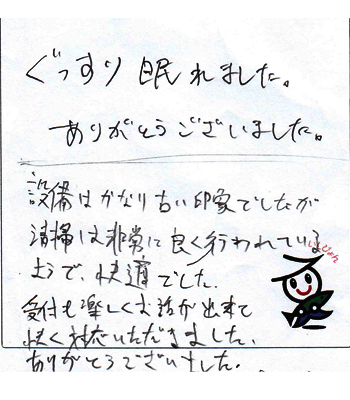 ぐっすり眠れました。
ありがとうございました。
設備はかなり古い印象でしたが
清掃は非常に良く行われている
ようで、快適でした。
受付も楽しくお話が出来て
快く対応いただきました。
ありがとうございました。